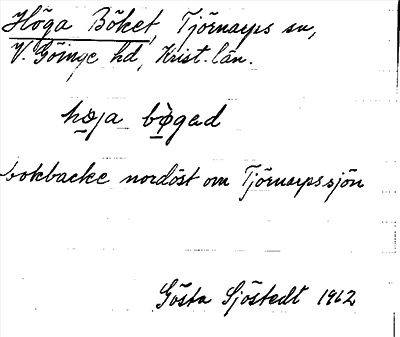 Höga Böket, Tjörnarps sn,
V. Göinge hd, Krist. län.
höja bøged
bokbacke nordöst om Tjörnarpssjön
Gösta Sjöstedt 1962